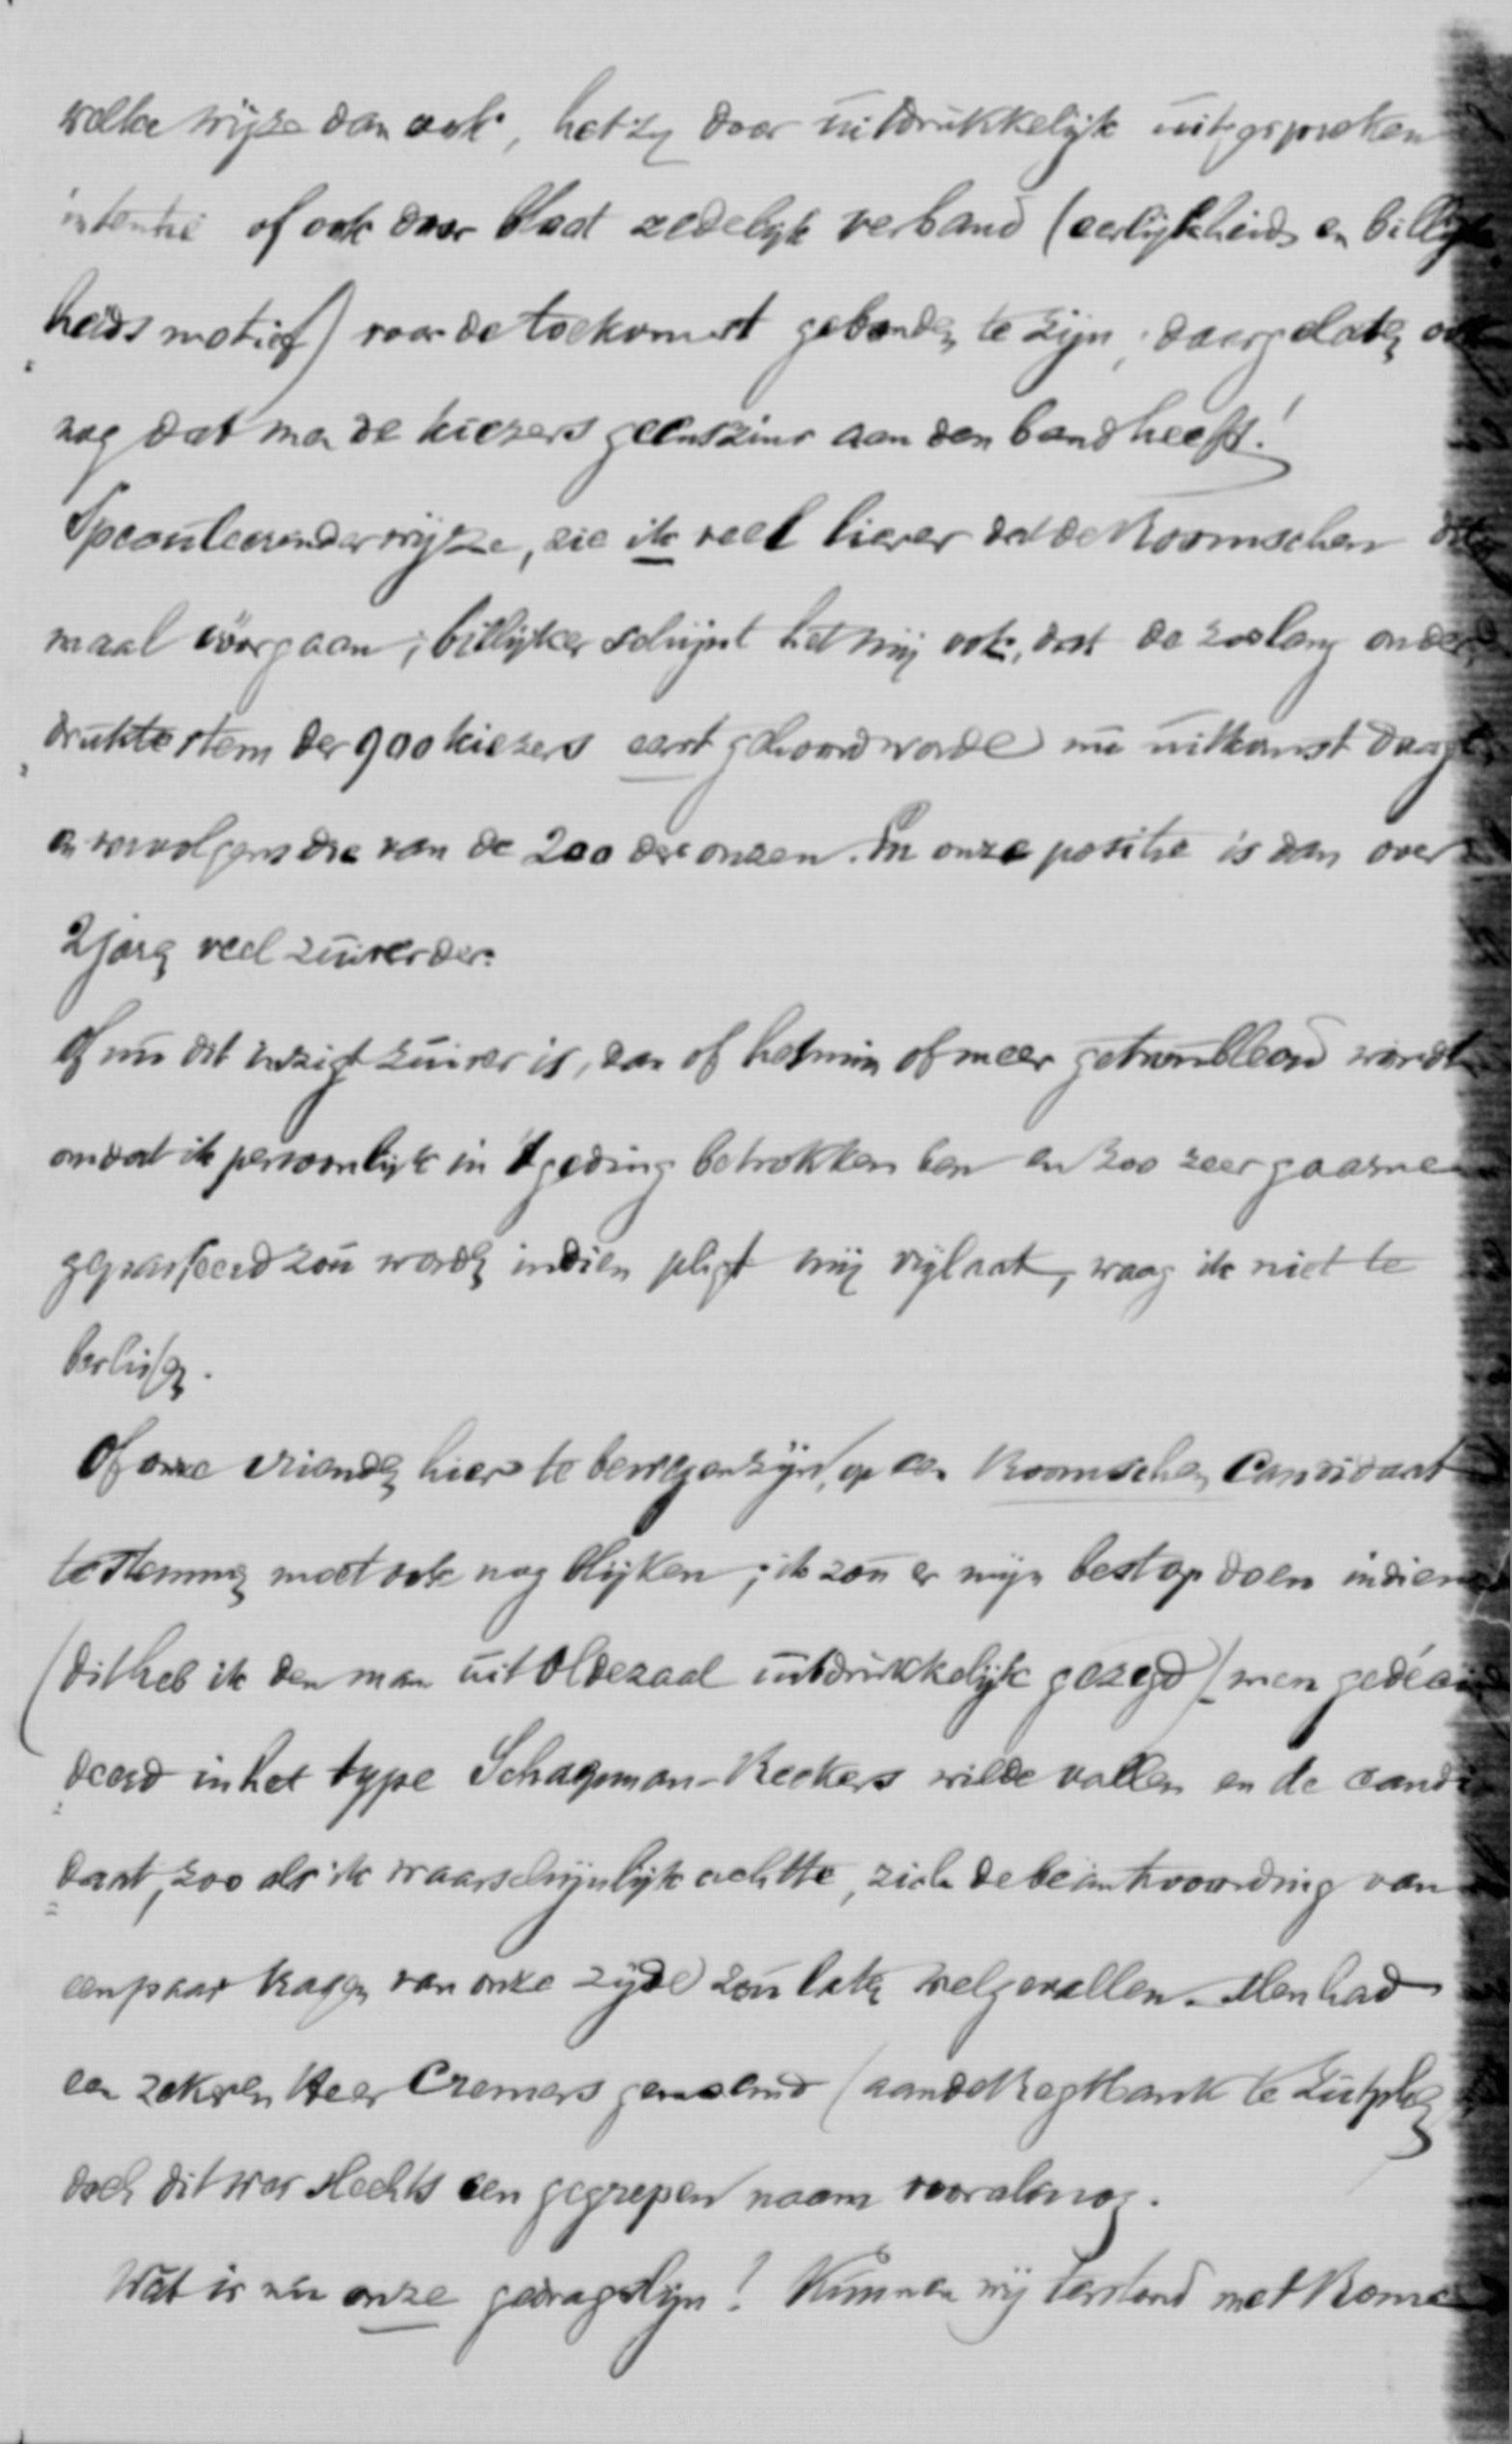 welke wijze dan ook, hetzij door uitdrukkelijk uitgesproken
intentie of ook door bloot zedelijk verband (eerlijkheids en billijk
heids motief) voor de toekomst gebonden te zijn; daargelaten ook
nog dat men de kiezers geenszins aan den band heeft!
Speculeerenderwijze, zie ik veel liever dat de Roomschen dit
maal vóórgaan; billijker schijnt het mij ook, dat de zoolang onder
drukte stem der 900 kiezers eerst gehoord worde nu uitkomst daagt,
en vervolgens die van de 200 der onzen. En onze positie is dan over
2 jaren veel zuiverder.
Of nu dit inzigt zuiver is, dan of het min of meer getroubleerd wordt
omdat ik persoonlijk in 't geding betrokken ben en zoo zeer gaarne
gepasseerd zou worden indien pligt mij vrijlaat, waag ik niet te
beslissen.
Of onze vrienden hier te bewegen zijn, op een Roomschen Candidaat
te stemmen moet ook nog blijken; ik zou er mijn best op doen indien
(dit heb ik den man uit Oldezaal uitdrukkelijk gezegd) men gedéci
deerd in het type Schaepman-Reekers wilde vallen en de candi
daat, zoo als ik waarschijnlijk achtte, zich de beäntwoording van
een paar vragen van onze zijde zou laten welgevallen. Men had
een zekeren Heer Cremers genoemd (aan de Regtbank te Zutphen
doch dit was slechts een gegrepen naam vooralsnog.
Wat is nu onze gedragslijn! Kunnen wij terstond met Rome